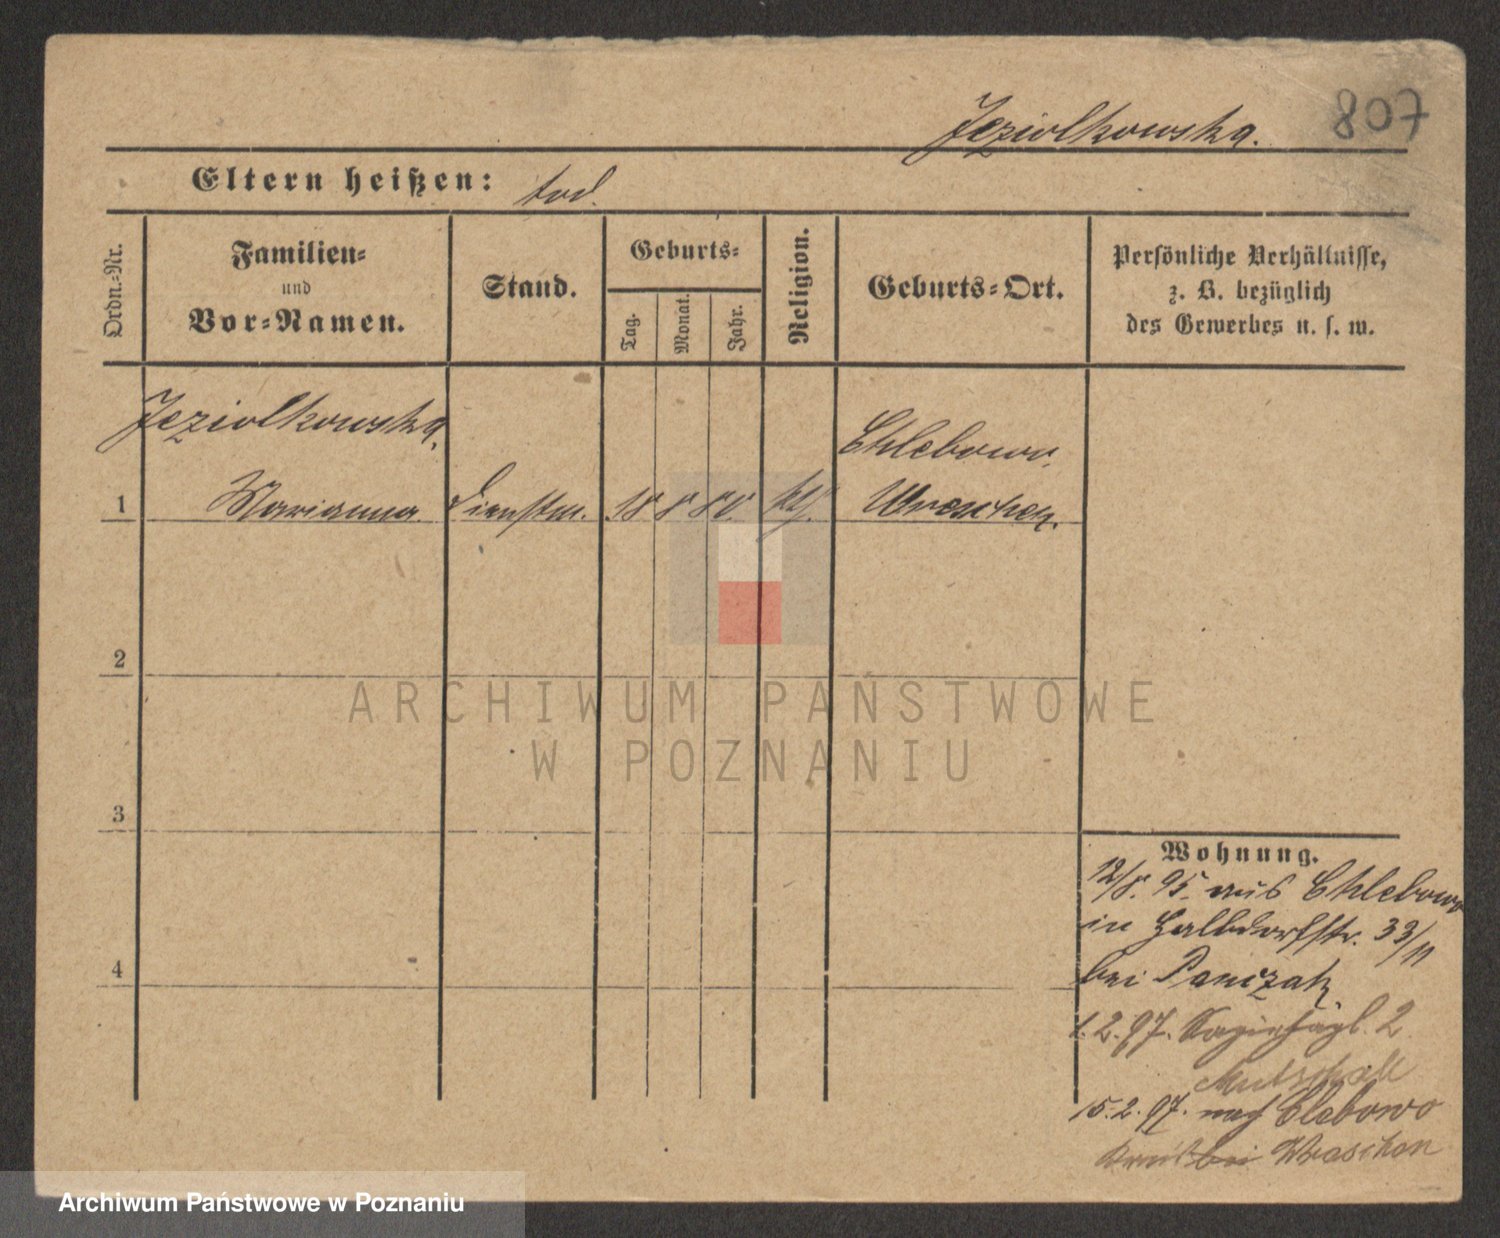 807
Jeziolkowska.
Eltern heißen: tod.
Ordn.-Nr.
Familien-
und
Vor-Namen.
Stand.
Geburts-
Tag.
Monat.
Jahr.
Religion.
Geburts-Ort.
Persönliche Verhältnisse,
z. B. bezüglich
des Gewerbes u. s. w.
Jeziolkowska,
Chlebowo,
1 Marianna Dienstm. 18 8 80 kth. Wreschen.
2
ARCHIWUM PAŃSTWOWE
W POZNANIU
3
Wohnung.
12/8. 95. aus Chlebowo
in Halbdorfstr. 33/II
bei Panczak,
4
1.2.97. 2
15.2.97. nach Clebowo
bei Wreschen
Archiwum Państwowe w Poznaniu